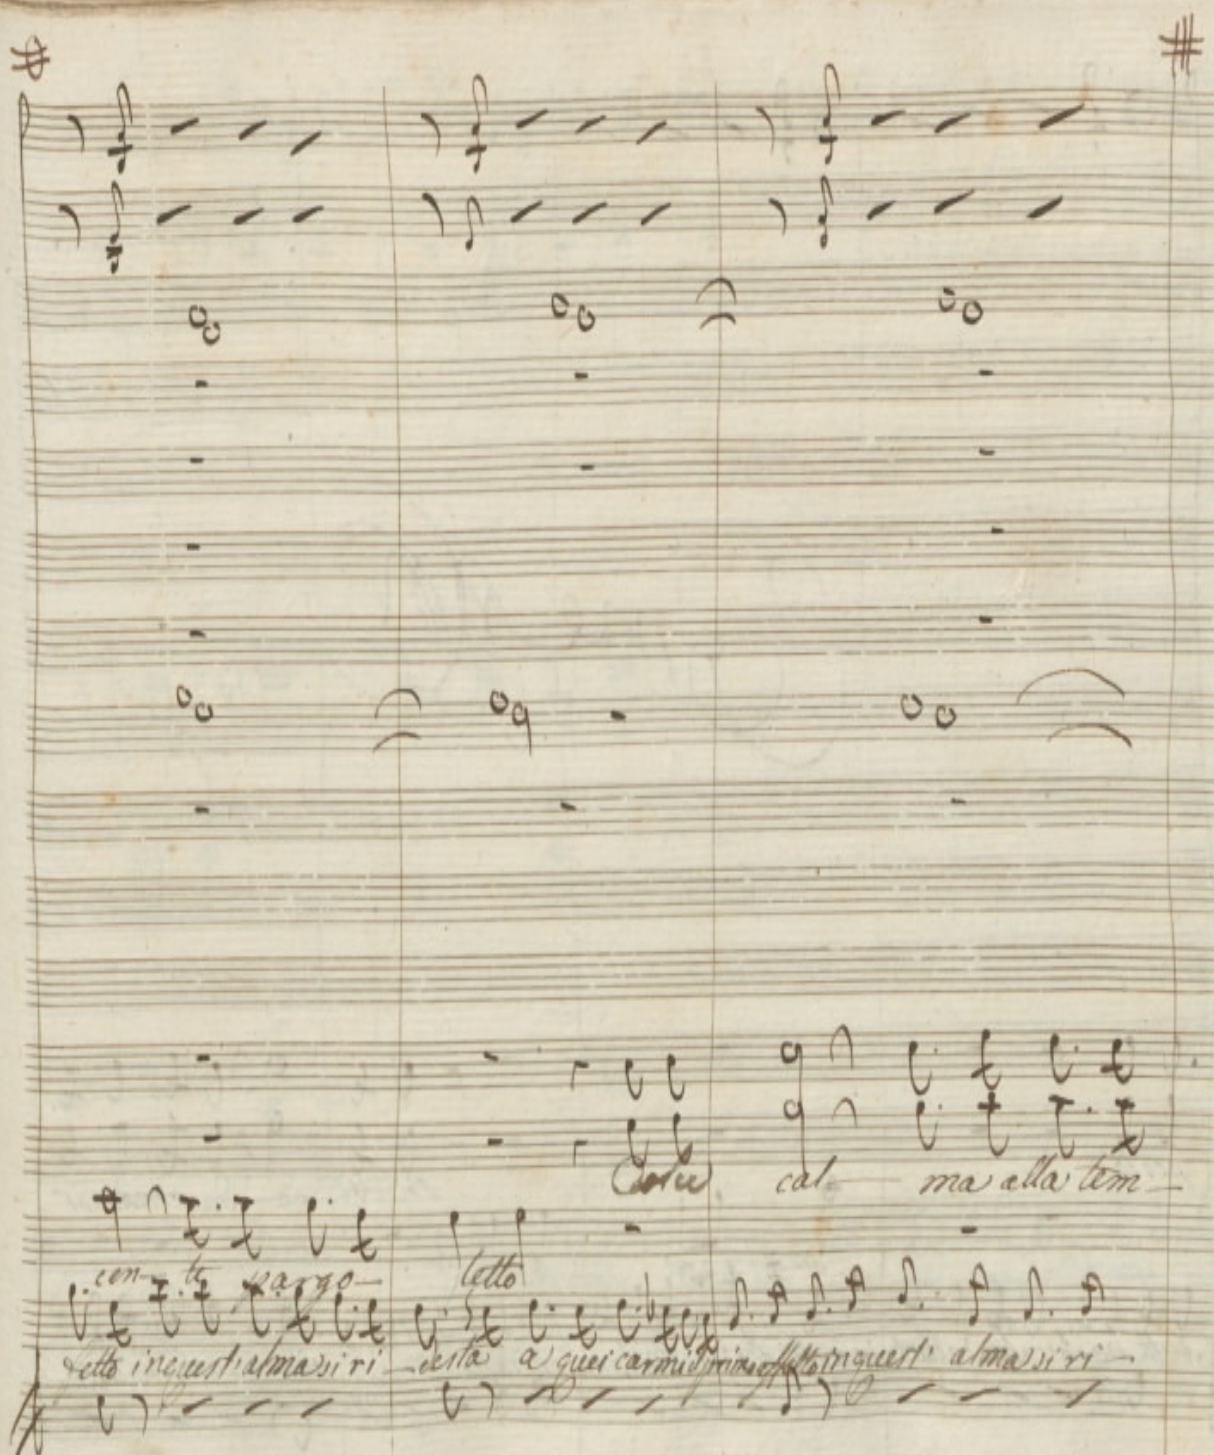 Dolce cal- ma alla tem-
cen- te pargo- letto
fetto in quest'alma si ri -desta a quei carmi in quest' alma si ri-